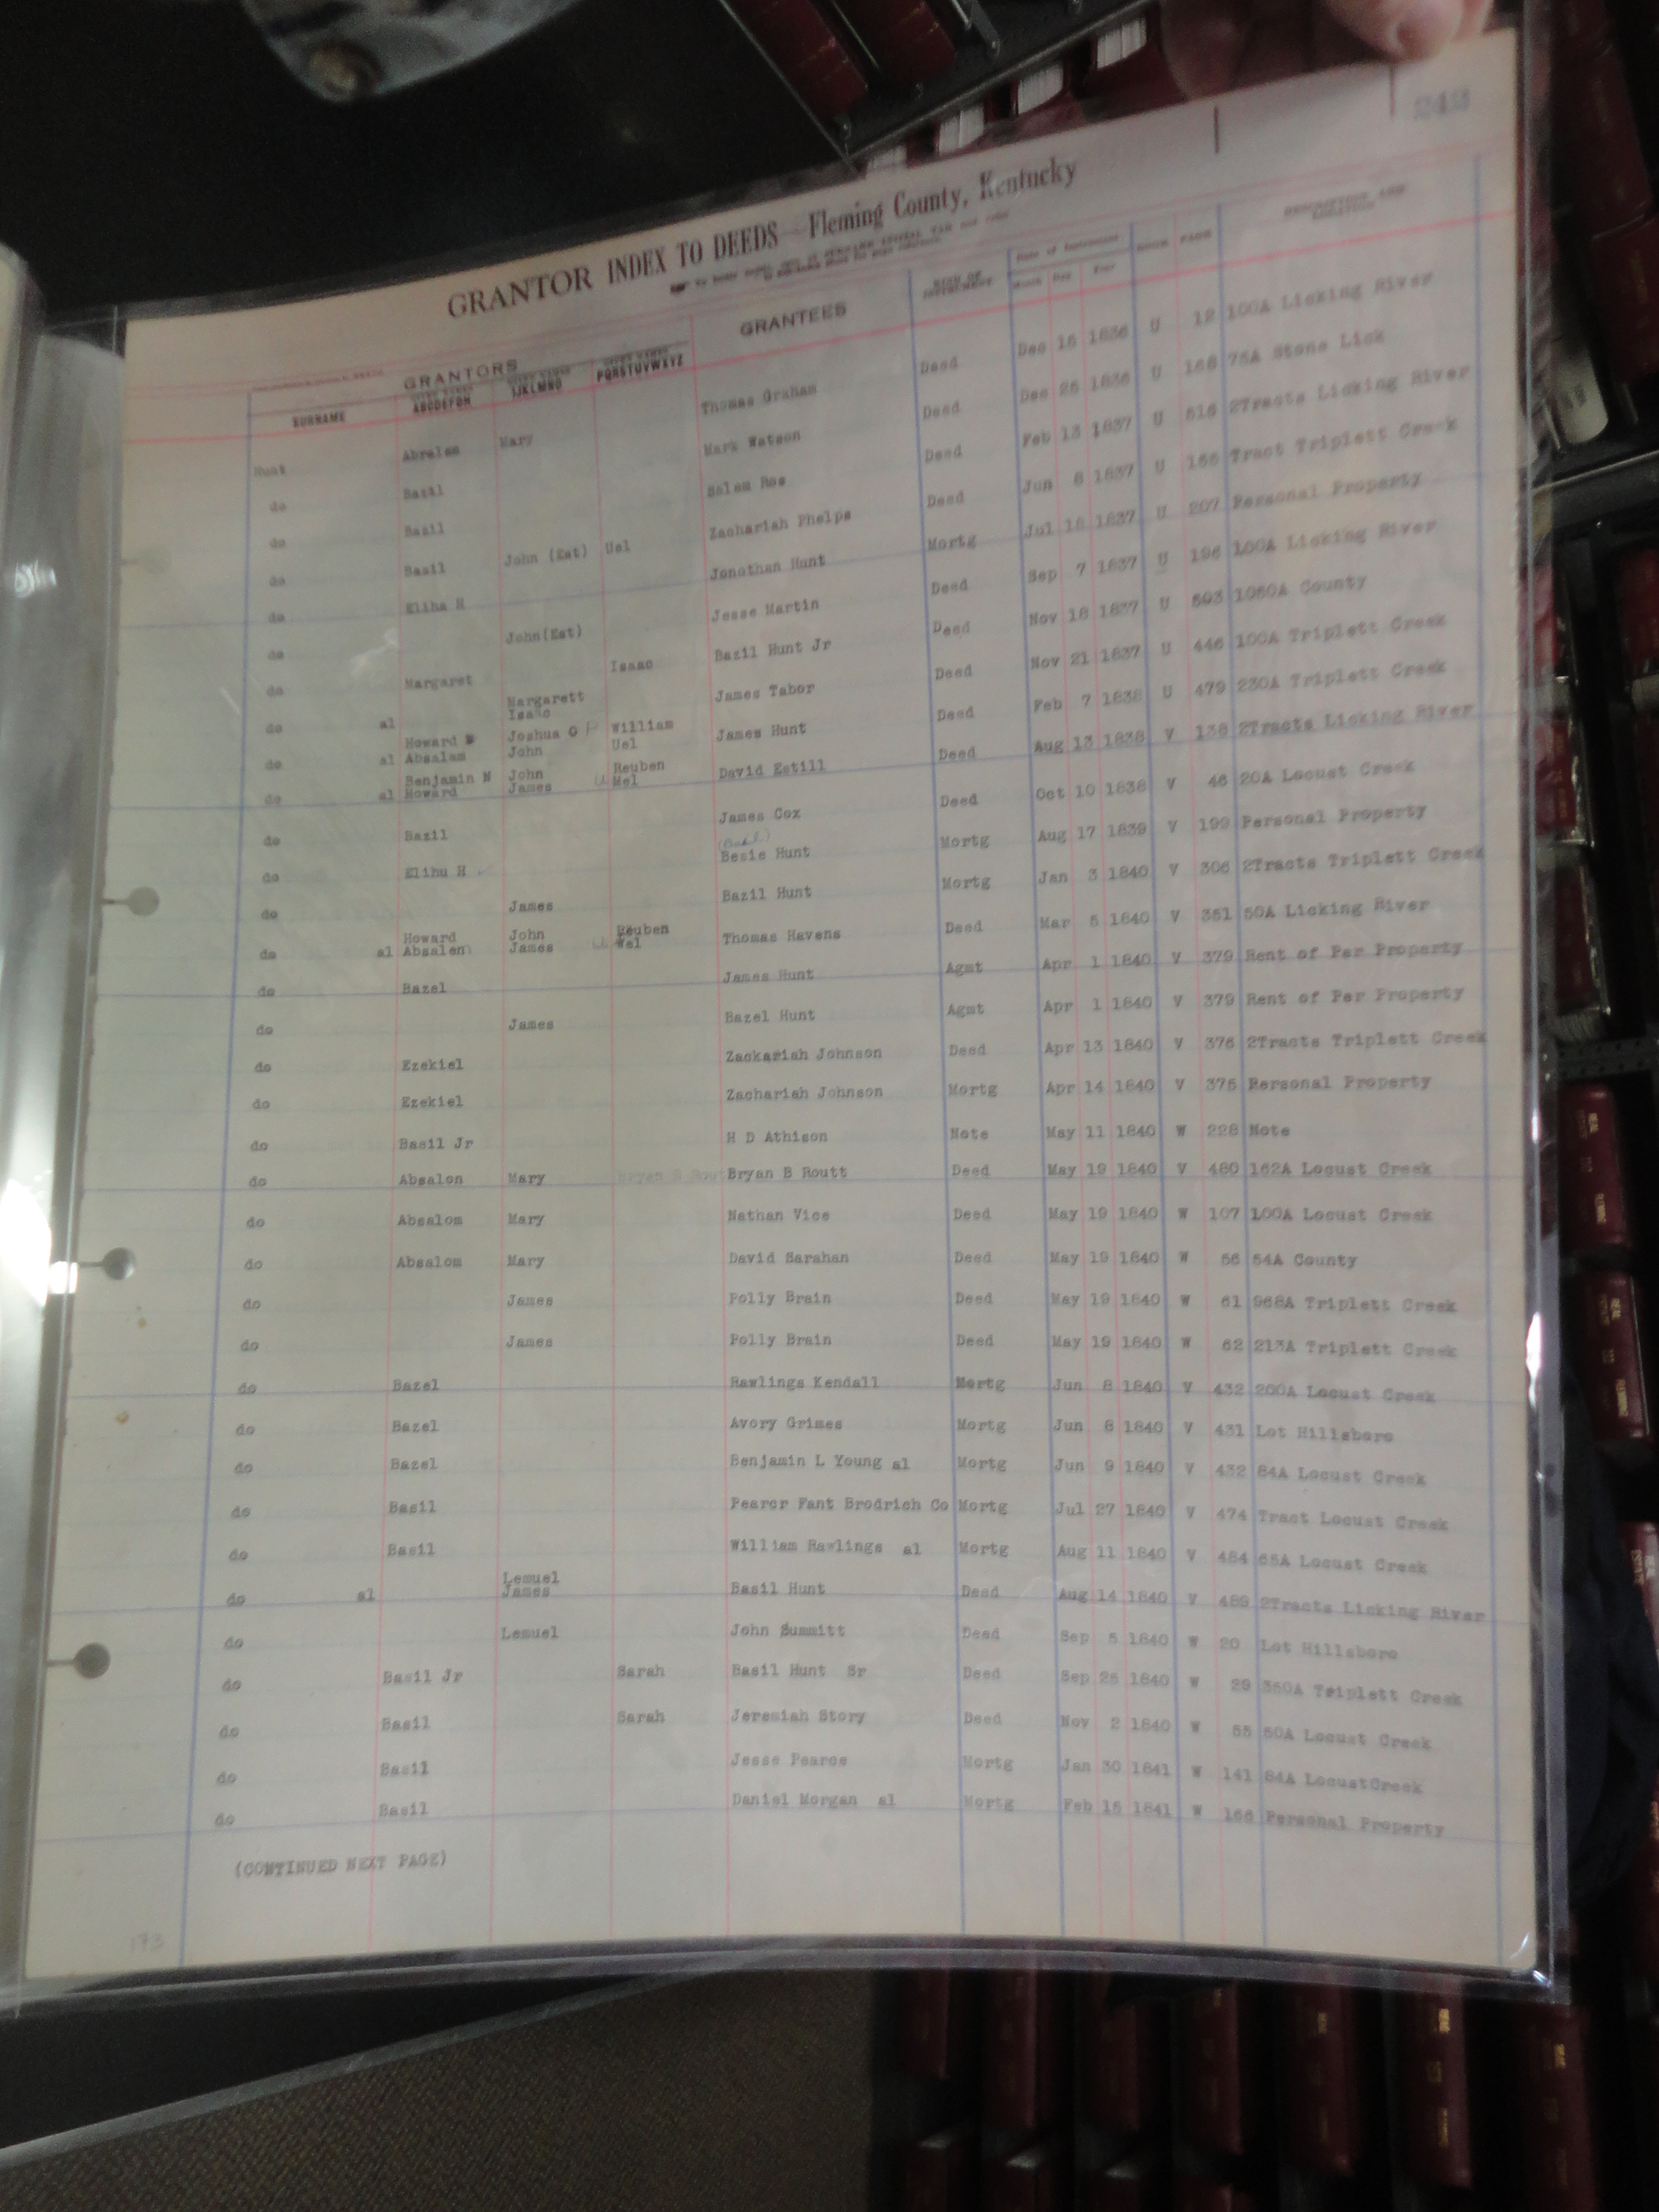 242
GRANTOR INDEX TO DEEDS—Fleming County, Kentucky
GRANTORS GRANTEES KIND OF INSTRUMENT Date of Instrument BOOK PAGE DESCRIPTION
SURNAME ABCDEFGH IJKLMNO PQRSTUVWXYZ Month Day Year
Hunt Abralam Mary Thomas Graham Deed Dec 1836 U 12 100A Licking River
do Basil Mark Watson Deed Dec 26 1836 U 168 75A Stone Lick
do Basil Salem Roe Deed Feb 13 1837 U 516 2Tracts Licking River
do Basil John (Est) Uel Zachariah Phelps Deed Jun 8 1837 U Tract Triplett Creek
do Eliha H Jonothan Hunt Mortg Jul 18 1837 U 207 Personal Property
do John(Est) Jesse Martin Deed Sep 7 1837 U 196 100A Licking River
do Margaret Isaac Bazil Hunt Jr Deed Nov 18 1837 U 503 1080A County
do al Margarett Isaac James Tabor Deed Nov 21 1837 U 446 100A Triplett Creek
do al Howard Absalam Joshua G P John William Uel James Hunt Deed Feb 7 1838 U 479 230A Triplett Creek
do al Benjamin N Howard John James Reuben Mel David Estill Deed Aug 13 1838 V 138 2Tracts Licking River
do Bazil James Cox Deed Oct 10 1838 V 46 20A Locust Creek
do Elihu H Besie Hunt Mortg Aug 17 1839 V 199 Personal Property
do James Bazil Hunt Mortg Jan 3 1840 V 306 2Tracts Triplett Creek
do al Howard Absalen John James Reuben Wel Thomas Havens Deed Mar 5 1840 V 351 50A Licking River
do Bazel James Hunt Agmt Apr 1 1840 V 379 Rent of Per Property
do James Bazel Hunt Agmt Apr 1 1840 V 379 Rent of Per Property
do Ezekiel Zackariah Johnson Deed Apr 13 1840 V 376 2Tracts Triplett Creek
do Ezekiel Zachariah Johnson Mortg Apr 14 1840 V 375 Personal Property
do Basil Jr H D Athison Note May 11 1840 W 228 Note
do Absalon Mary Bryan B Rout Bryan B Routt Deed May 19 1840 V 480 162A Locust Creek
do Absalom Mary Nathan Vice Deed May 19 1840 W 107 100A Locust Creek
do Absalom Mary David Sarahan Deed May 19 1840 W 56 54A County
do James Polly Brain Deed May 19 1840 W 61 968A Triplett Creek
do James Polly Brain Deed May 19 1840 W 62 213A Triplett Creek
do Bazel Rawlings Kendall Mortg Jun 8 1840 V 432 200A Locust Creek
do Bazel Avory Grimes Mortg Jun 8 1840 V 431 Lot Hillsboro
do Bazel Benjamin L Young al Mortg Jun 9 1840 V 432 84A Locust Creek
do Basil Pearcr Fant Brodrich Co Mortg Jul 27 1840 V 474 Tract Locust Creek
do Basil William Rawlings al Mortg Aug 11 1840 V 484 65A Locust Creek
do al Lemuel James Basil Hunt Deed Aug 14 1840 V 489 2Tracts Licking River
do Lemuel John Summitt Deed Sep 5 1840 W 20 Lot Hillsboro
do Basil Jr Sarah Basil Hunt Sr Deed Sep 25 1840 W 29 350A Triplett Creek
do Basil Sarah Jeremiah Story Deed Nov 2 1840 W 55 50A Locust Creek
do Basil Jesse Pearce Mortg Jan 30 1841 W 141 84A LocustCreek
do Basil Daniel Morgan al Mortg Feb 15 1841 W 166 Personal Property
(CONTINUED NEXT PAGE)
173